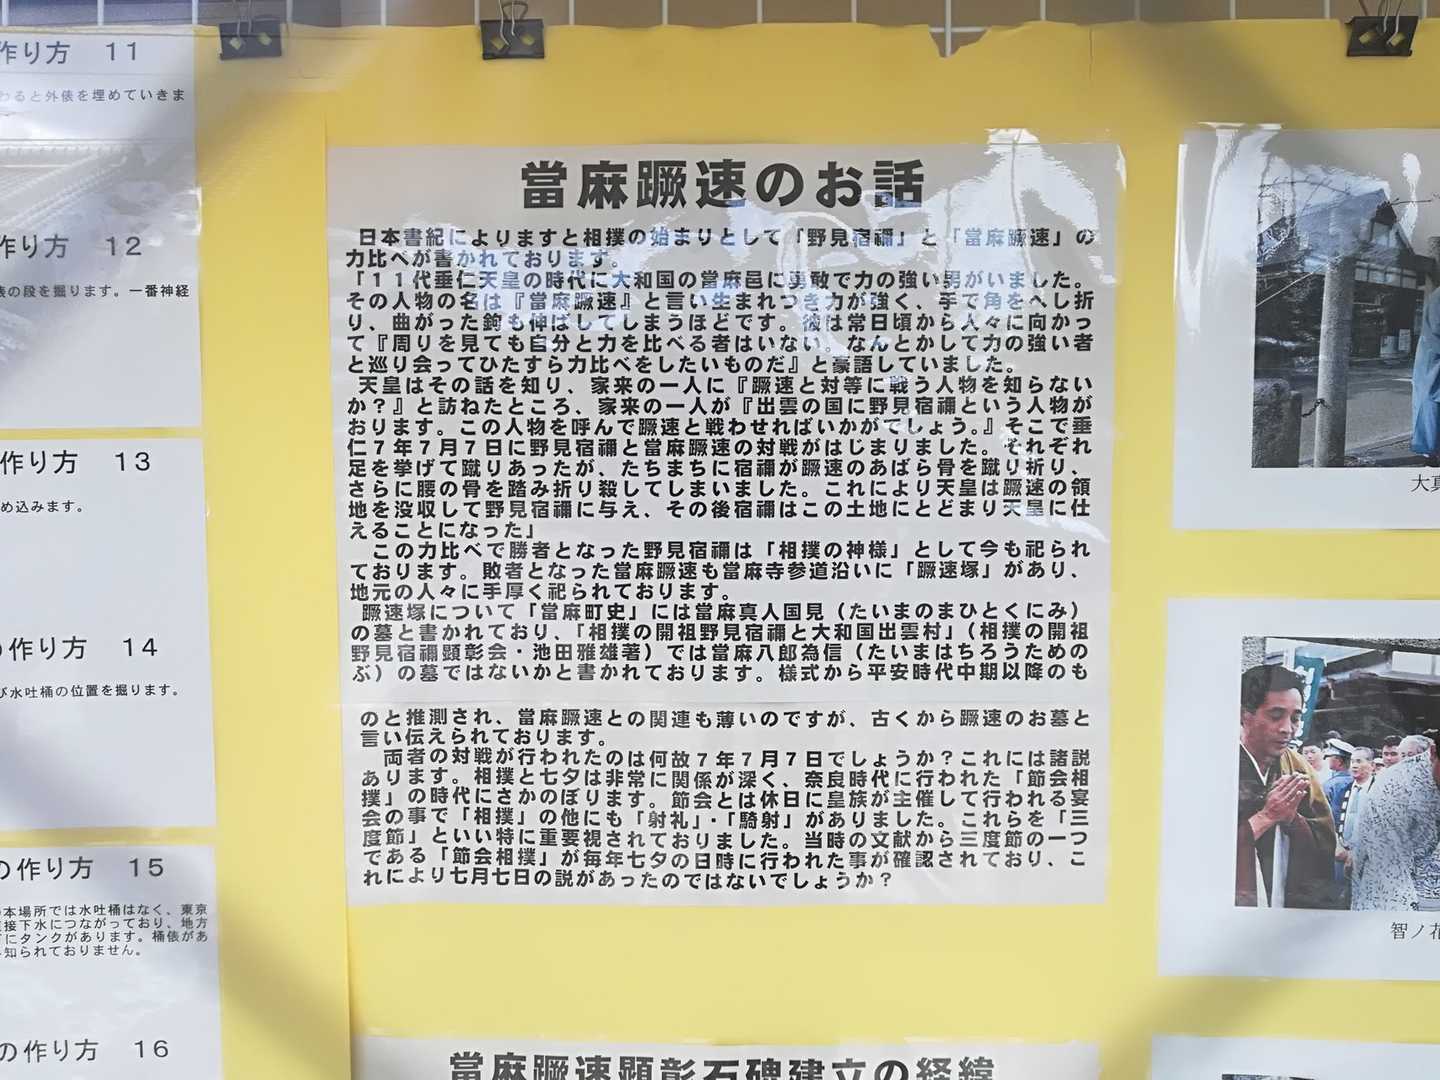 作り方　11
わると外俵を埋めていきま
作り方　12
俵の段を掘ります。一番神経
作り方　13
め込みます。
の作り方　14
び水吐桶の位置を掘ります。
の作り方　15
本場所では水吐桶はなく、東京
接下水につながっており、地方
にタンクがあります。桶俵があ
知られておりません。
の作り方　16
當麻蹶速のお話
日本書紀によりますと相撲の始まりとして「野見宿禰」と「當麻蹶速」の
力比べが書かれております。
「１１代垂仁天皇の時代に大和国の當麻邑に勇敢で力の強い男がいました。
その人物の名は『當麻蹶速』と言い生まれつき力が強く、手で角をへし折
り、曲がった鉤も伸ばしてしまうほどです。彼は常日頃から人々に向かっ
て『周りを見ても自分と力を比べる者はいない。なんとかして力の強い者
と巡り会ってひたすら力比べをしたいものだ』と豪語していました。
天皇はその話を知り、家来の一人に『蹶速と対等に戦う人物を知らない
か？』と訪ねたところ、家来の一人が『出雲の国に野見宿禰という人物が
おります。この人物を呼んで蹶速と戦わせればいかがでしょう。』そこで垂
仁７年７月７日に野見宿禰と當麻蹶速の対戦がはじまりました。それぞれ
足を挙げて蹴りあったが、たちまちに宿禰が蹶速のあばら骨を蹴り折り、
さらに腰の骨を踏み折り殺してしまいました。これにより天皇は蹶速の領
地を没収して野見宿禰に与え、その後宿禰はこの土地にとどまり天皇に仕
えることになった」
この力比べで勝者となった野見宿禰は「相撲の神様」として今も祀られ
ております。敗者となった當麻蹶速も當麻寺参道沿いに「蹶速塚」があり、
地元の人々に手厚く祀られております。
蹶速塚について「當麻町史」には當麻真人国見（たいまのまひとくにみ）
の墓と書かれており、「相撲の開祖野見宿禰と大和国出雲村」（相撲の開祖
野見宿禰顕彰会・池田雅雄著）では當麻八郎為信（たいまはちろうための
ぶ）の墓ではないかと書かれております。様式から平安時代中期以降のも
のと推測され、當麻蹶速との関連も薄いのですが、古くから蹶速のお墓と
言い伝えられております。
両者の対戦が行われたのは何故７年７月７日でしょうか？これには諸説
あります。相撲と七夕は非常に関係が深く、奈良時代に行われた「節会相
撲」の時代にさかのぼります。節会とは休日に皇族が主催して行われる宴
会の事で「相撲」の他にも「射礼」・「騎射」がありました。これらを「三
度節」といい特に重要視されておりました。当時の文献から三度節の一つ
である「節会相撲」が毎年七夕の日時に行われた事が確認されており、こ
れにより七月七日の説があったのではないでしょうか？
當麻蹶速顕彰石碑建立の経緯
大真
智ノ花